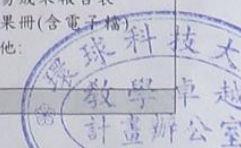 果報告表
果冊(含電子檔)
他:
環球科技大
教學卓越
計畫辦公室